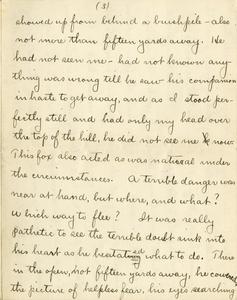 (3)
showed up from behind a brushpile - also
not more than fifteen yards away. He
had not seen me - had not known any-
thing was wrong till he saw his companion
in haste to get away, and as I stood per-
fectly still and had only my head over
the top of the hill, he did not see me now.
This fox also acted as was natural under
the circumstances. A terrible danger was
near at hand, but where, and what?
Which way to flee? It was really
pathetic to see the terrible doubt sink into
his heart as he hesitated what to do. There
in the open, not fifteen yards away, he
the picture of helpless fear, his eyes searching